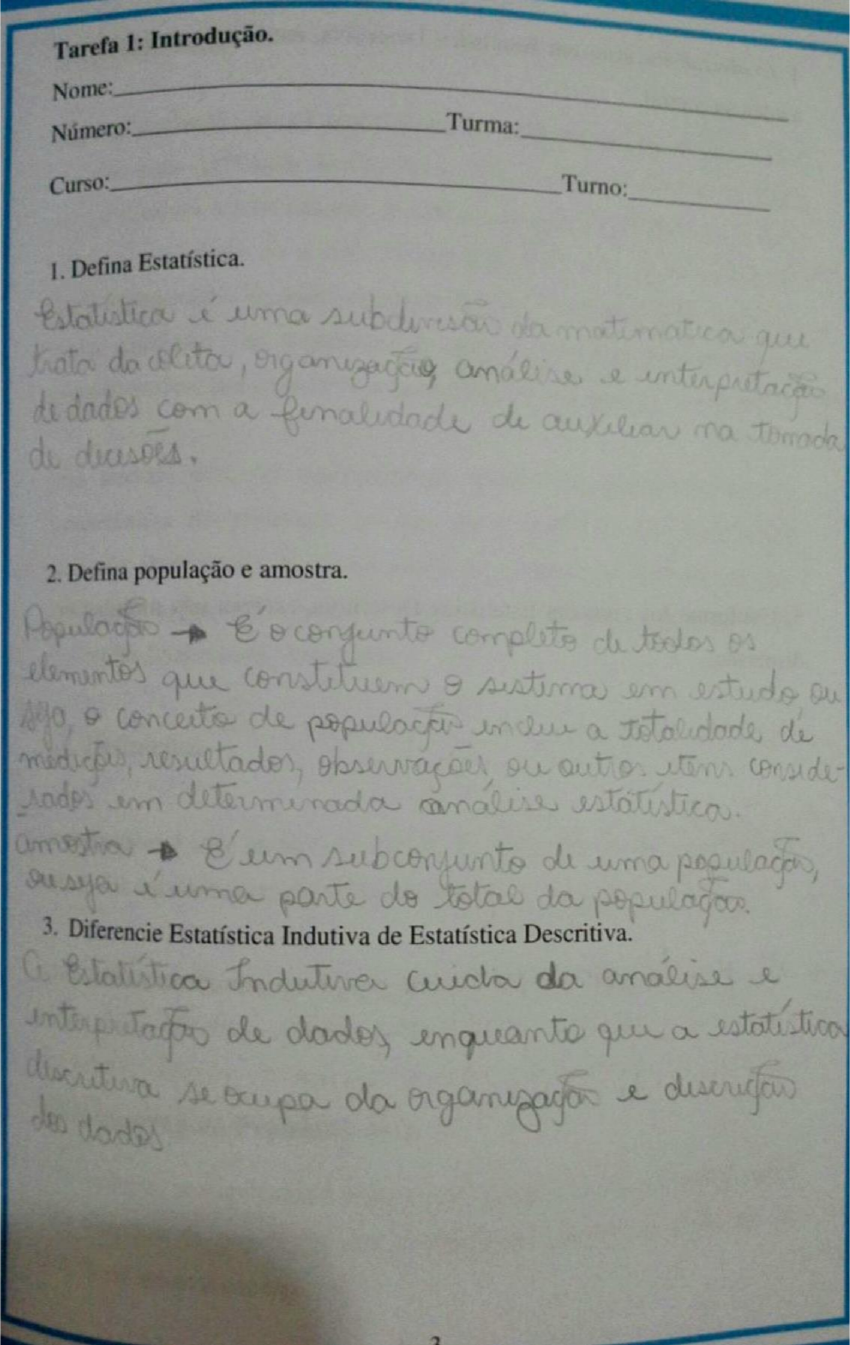 Tarefa 1: Introdução.
Nome:
Número: Turma:
Curso: Turno:
1. Defina Estatística.
Estatística é uma subdivisão da matemática que
trata da coleta, organização, análise e interpretação
de dados com a finalidade de auxiliar na tomada
de decisões.
2. Defina população e amostra.
População → É o conjunto completo de todos os
elementos que constituem o sistema em estudo, ou
seja, o conceito de população inclui a totalidade de
medições, resultados, observações, ou outros itens conside-
rados em determinada análise estatística.
amostra → É um subconjunto de uma população,
ou seja é uma parte do total da população.
3. Diferencie Estatística Indutiva de Estatística Descritiva.
A Estatística Indutiva cuida da análise e
interpretação de dados, enquanto que a estatística
descritiva se ocupa da organização e descrição
dos dados